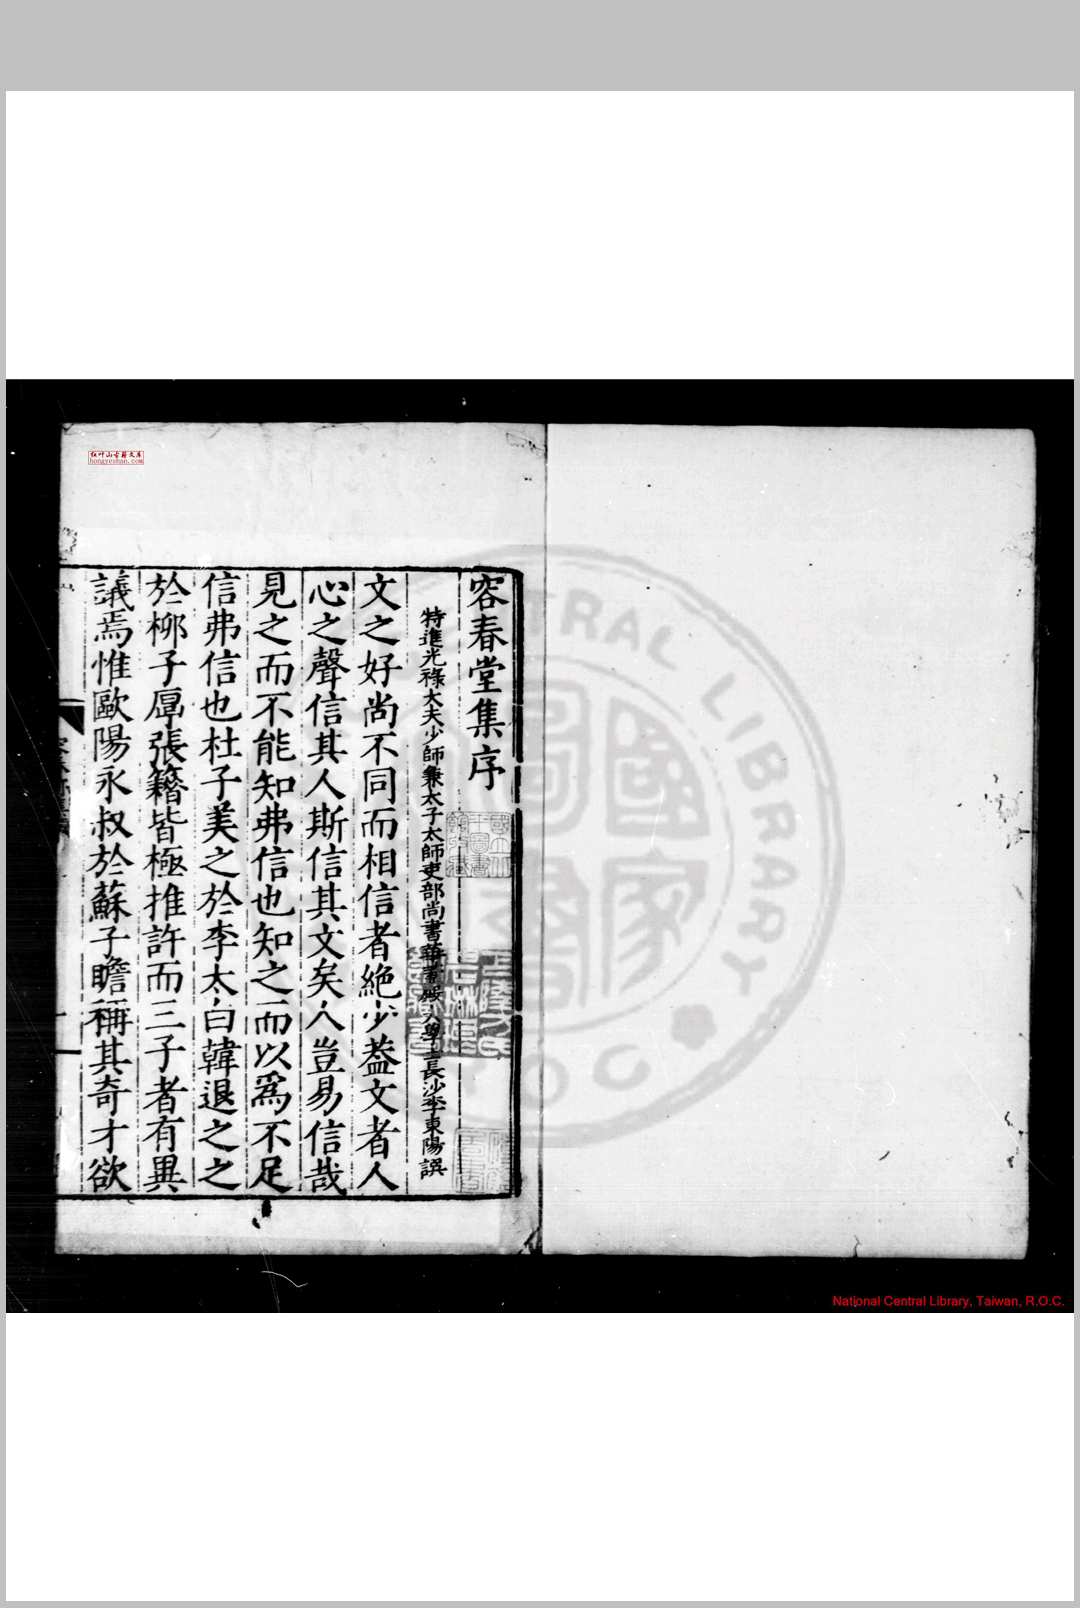 容春堂集序
特進光祿大夫少師兼太子太師吏部尚書華蓋殿大學士長沙李東陽譔
文之好尚不同而相信者絶少葢文者人
心之聲信其人斯信其文矣人豈易信哉
見之而不能知弗信也知之而以爲不足
信弗信也杜子美之於李太白韓退之之
於柳子厚張籍皆極推許而三子者有異
議焉惟歐陽永叔於蘇子瞻稱其奇才欲
红叶山古籍文库
hongyeshan.com
國家圖書
CENTRAL LIBRARY
R.O.C.
National Central Library, Taiwan, R.O.C.